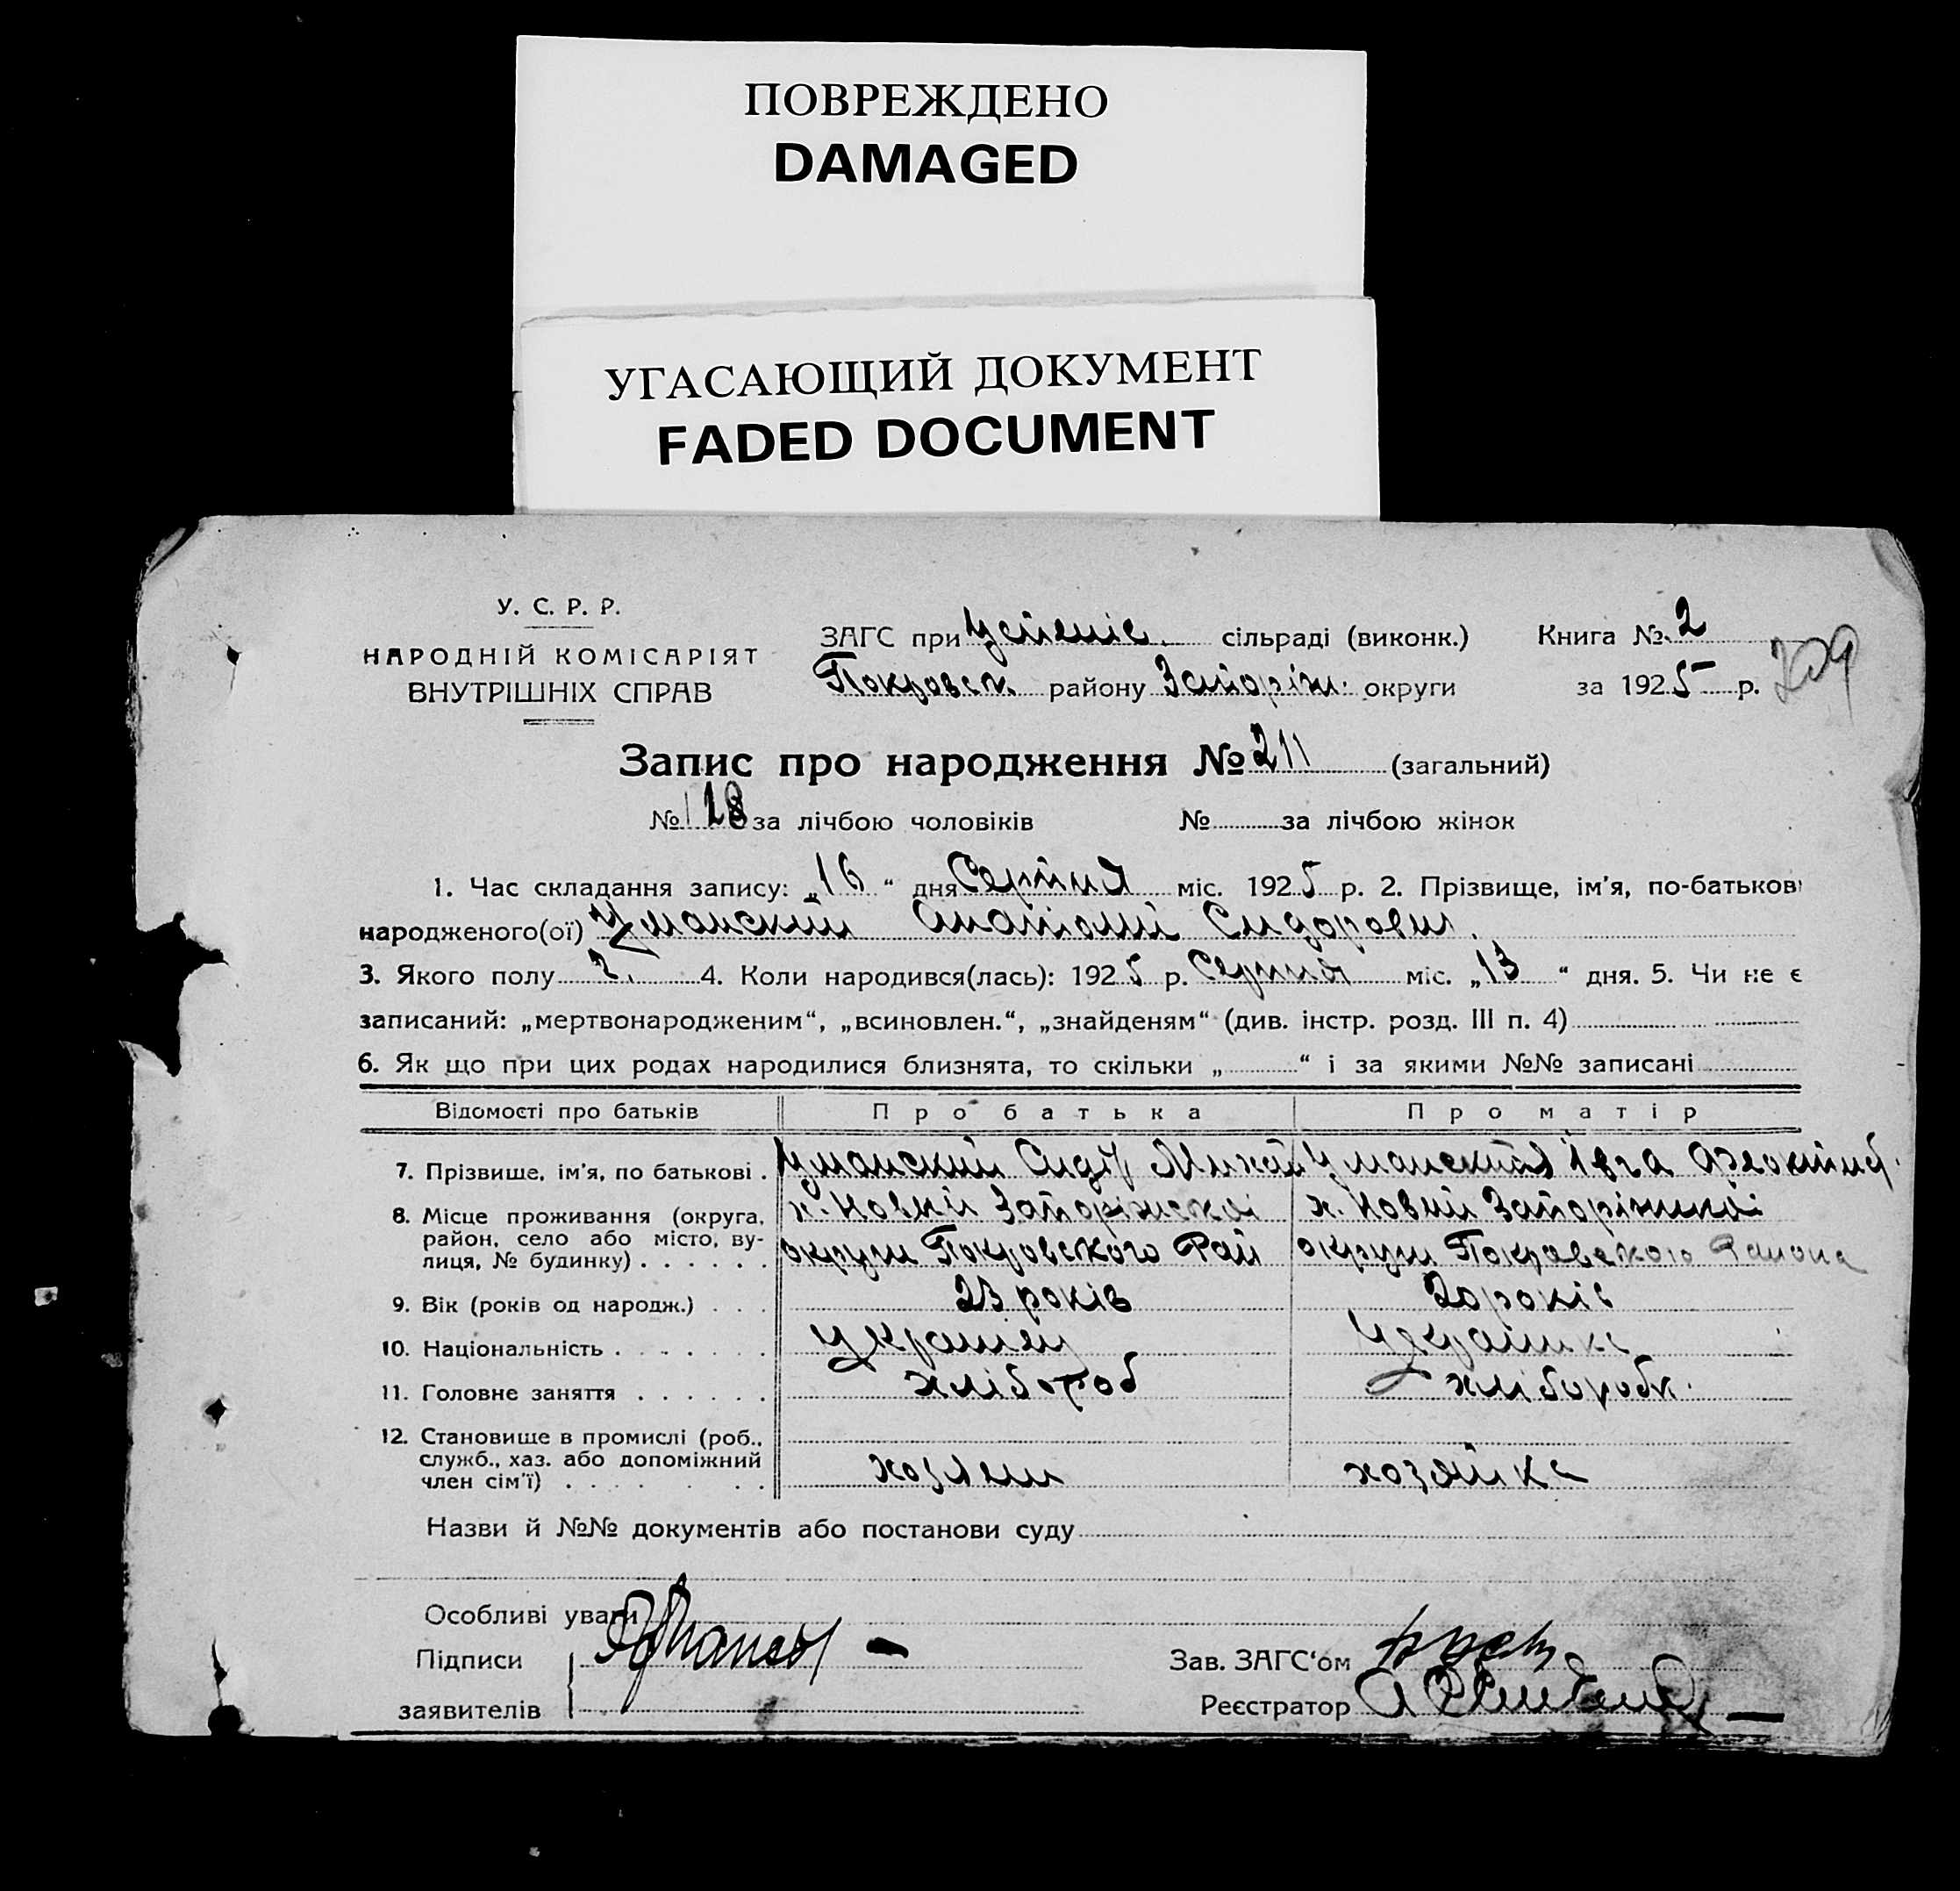 ПОВРЕЖДЕНО
DAMAGED
УГАСАЮЩИЙ ДОКУМЕНТ
FADED DOCUMENT
У. С. Р. Р.
НАРОДНІЙ КОМІСАРІЯТ
ВНУТРІШНІХ СПРАВ
ЗАГС при Успеніє. сільраді (виконк.) Книга № 2
Покровск. району Запоріж. округи за 1925 р. 209
Запис про народження № 211 (загальний)
№ 128 за лічбою чоловіків № за лічбою жінок
1. Час складання запису: „16“ дня Серпня міс. 1925 р. 2. Прізвище, ім’я, по-батькові
народженого(ої) Уманский Анатолій Сидорович.
3. Якого полу 2. 4. Коли народився(лась): 1925 р. Серпня міс. „13“ дня. 5. Чи не є
записаний: „мертвонародженим“, „всиновлен.“, „знайденям“ (див. інстр. розд. III п. 4)
6. Як що при цих родах народилися близнята, то скільки „ “ і за якими №№ записані
Відомості про батьків Про батька Про матір
7. Прізвище, ім’я, по батькові . Уманский Сидір Михай Уманская Івга
8. Місце проживання (округа, х. Новий Запоріжскої х. Новий Запоріжскої
район, село або місто, ву-
лиця, № будинку) . . . . . . округи Покровского Рай округи Покровского Района
9. Вік (років од народж.) . . . 23 років 20 років
10. Національність . . . . . . . українец українка
11. Головне заняття . . . . . . хлібороб хлібороб.
12. Становище в промислі (роб.,
служб., хаз. або допоміжний
член сім’ї) . . . . . . . . хозяин хозяйка
Назви й №№ документів або постанови суду
Особливі уваги
Підписи
заявителів
Зав. ЗАГС‘ом
Реєстратор